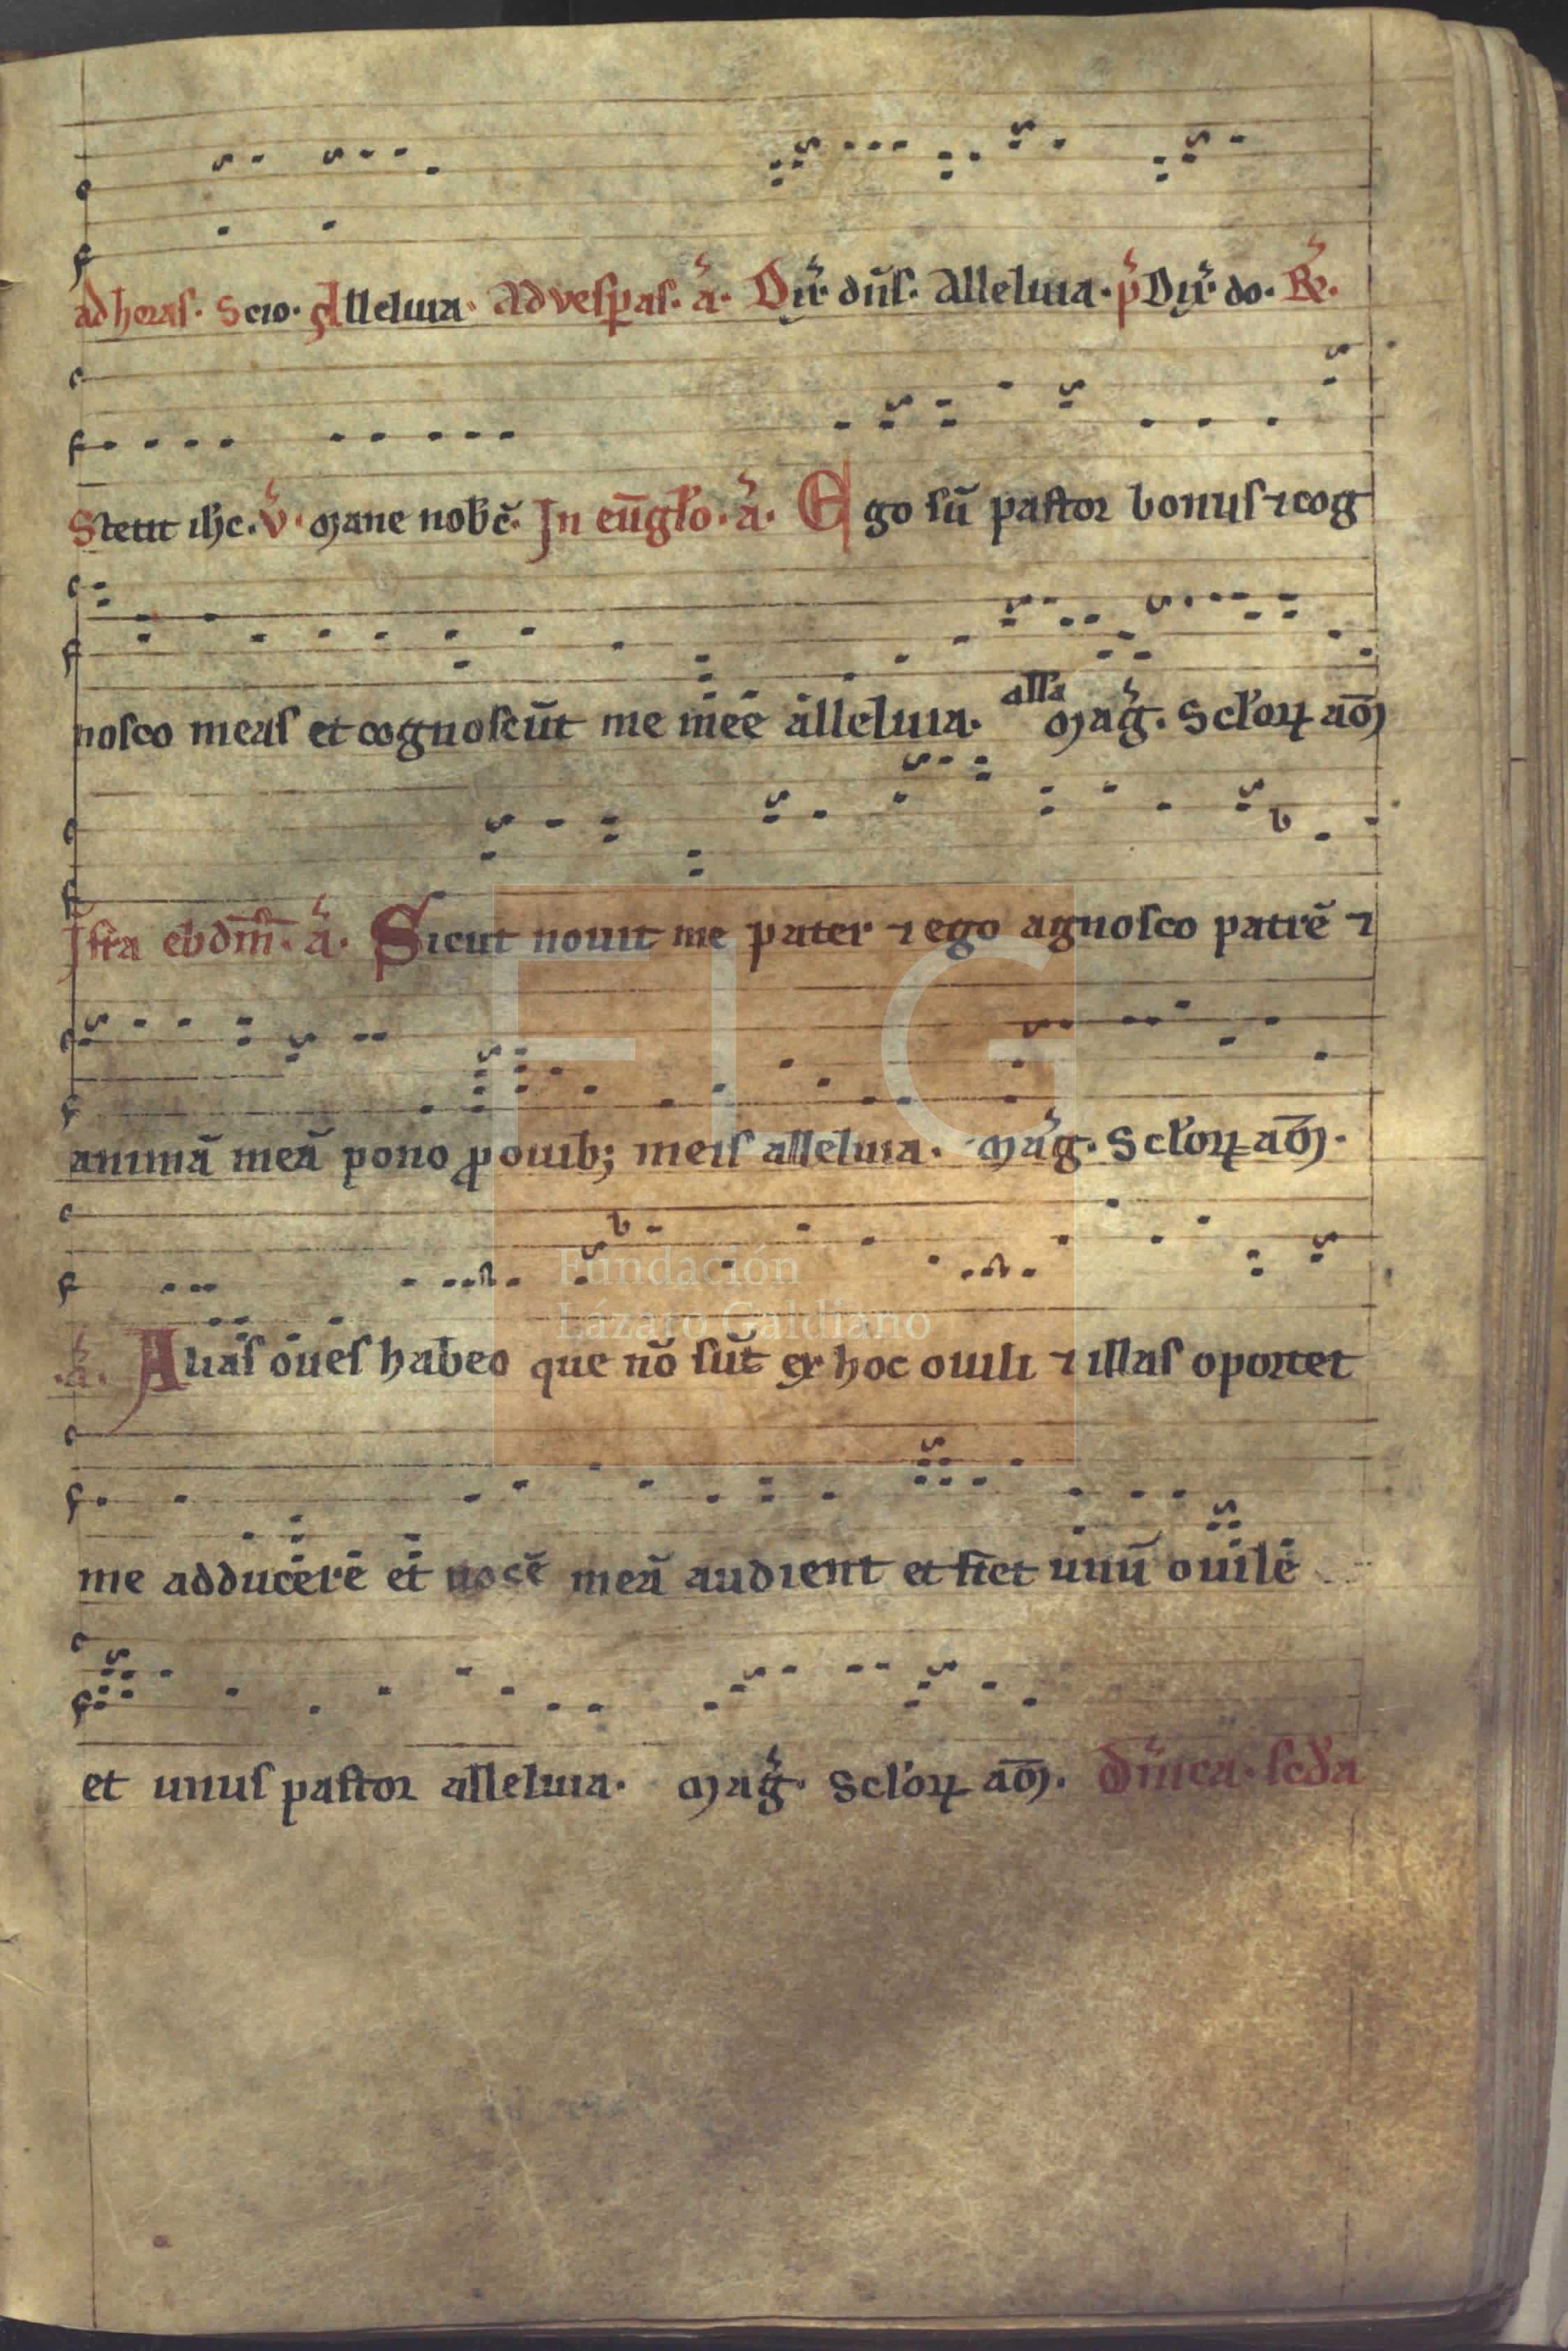 ad horas. Scio. Alleluia. Ad vesꝑas. a᷒. Dix̃. dñs. Alleluia. p᷒ Dix̃. do. R̷.
Stetit ihc. v̊. Mane nob̄c̃. In eũgl̓o. a᷒. Ego sũ pastor bonus ⁊ cog
nosco meas et cognoscũt me meẽ alleluia. all̓a Mag̃. Scl̓oꝝ am̃
Iſtra ebdm̄. a᷒. Sicut novit me pater ⁊ ego agnosco patrẽ ⁊
animã meã pono ꝓ ouib; meis alleluia. Mag̃. Scl̓oꝝ am̃.
.a᷒. Alias oues habeo que nõ sũt ex hoc ouili ⁊ illas oportet
me adducere et vocẽ meã audient et fiet unũ ouile
et unus pastor alleluia. Mag̃. Scl̓oꝝ am̃. Dñica. scd̓a
FLG
Fundación
Lázaro Galdiano